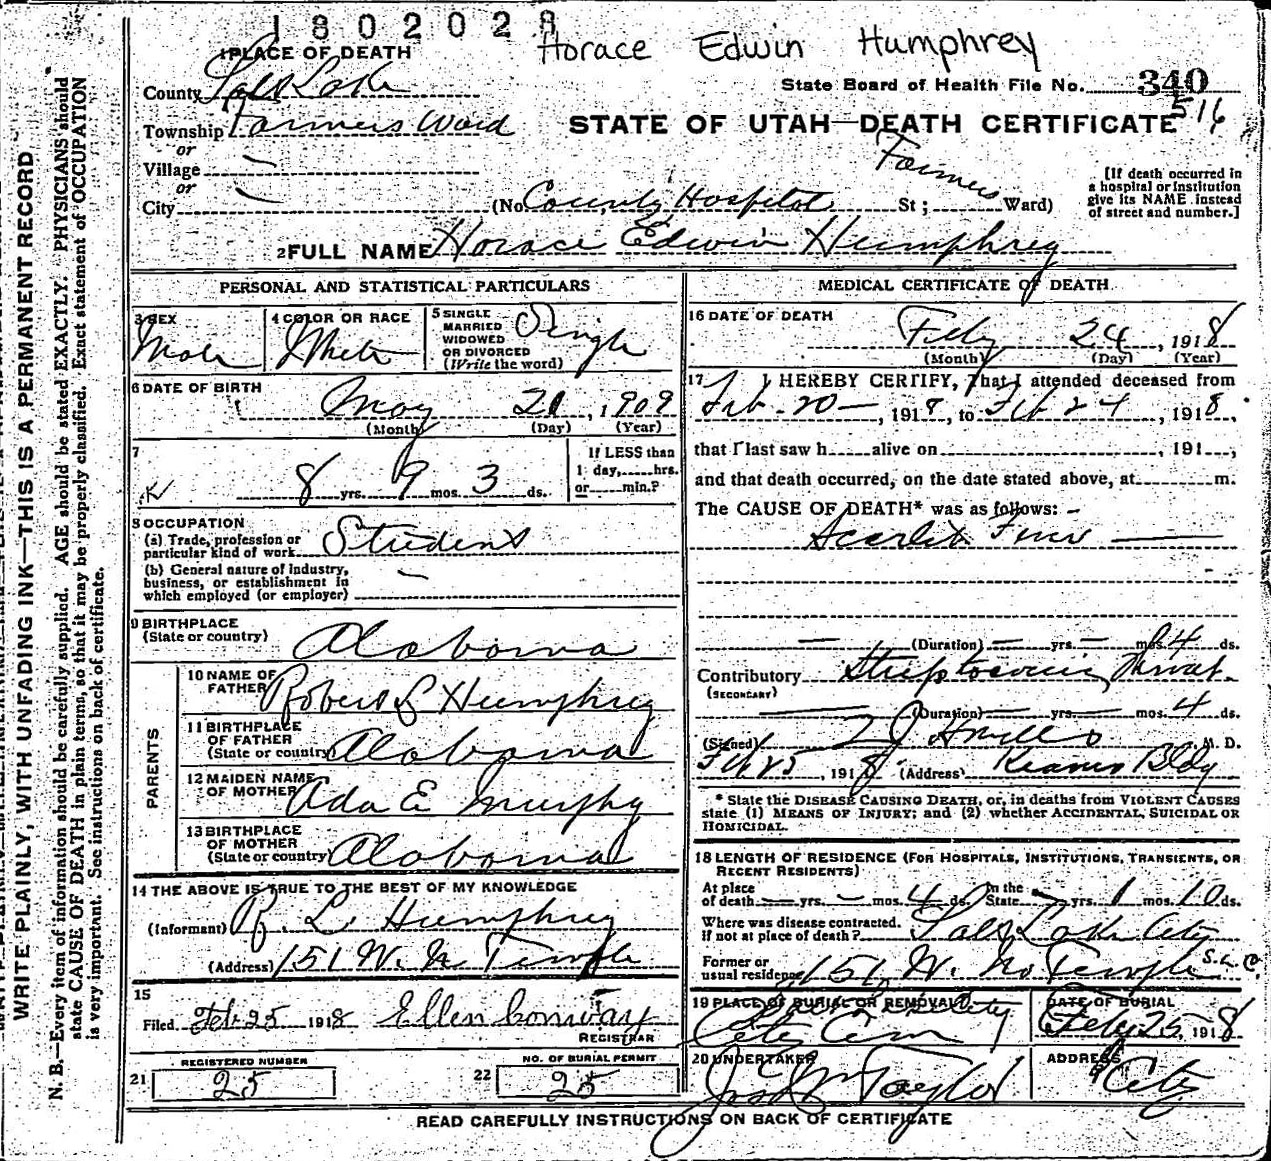 1802028
Horace Edwin Humphrey
1 PLACE OF DEATH
State Board of Health File No. 340
516
County Salt Lake
Township Farmers Ward
STATE OF UTAH—DEATH CERTIFICATE
or
Village —
or
City —
(No. County Hospital St; Farmers Ward)
[If death occurred in a hospital or institution give its NAME instead of street and number.]
2 FULL NAME Horace Edwin Humphrey
PERSONAL AND STATISTICAL PARTICULARS
3 SEX Male
4 COLOR OR RACE White
5 SINGLE MARRIED WIDOWED OR DIVORCED (Write the word) Single
6 DATE OF BIRTH
May 21, 1909
(Month) (Day) (Year)
7
8 yrs. 9 mos. 3 ds.
If LESS than 1 day, hrs. or min.?
8 OCCUPATION
(a) Trade, profession or particular kind of work Student
(b) General nature of industry, business, or establishment in which employed (or employer) —
9 BIRTHPLACE (State or country) Alabama
PARENTS
10 NAME OF FATHER Robert L Humphrey
11 BIRTHPLACE OF FATHER (State or country) Alabama
12 MAIDEN NAME OF MOTHER Ada E Murphy
13 BIRTHPLACE OF MOTHER (State or country) Alabama
14 THE ABOVE IS TRUE TO THE BEST OF MY KNOWLEDGE
(Informant) R. L. Humphrey
(Address) 151 W. N. Temple
15
Filed Feb 25 1918 Ellen Conway
REGISTRAR
REGISTERED NUMBER
21 25
NO. OF BURIAL PERMIT
22 25
MEDICAL CERTIFICATE OF DEATH
16 DATE OF DEATH
Feby 24, 1918
(Month) (Day) (Year)
17 I HEREBY CERTIFY, That I attended deceased from
Feb. 20 —, 1918, to Feb 24, 1918,
that I last saw h alive on , 191 ,
and that death occurred, on the date stated above, at m.
The CAUSE OF DEATH* was as follows:
Scarlet Fever —
— (Duration) — yrs. — mos. 4 ds.
Contributory Streptococcic Throat
(SECONDARY)
— (Duration) — yrs. — mos. 4 ds.
(Signed) M. D.
Feb 25, 1918 (Address) Kearns Bldg
* State the DISEASE CAUSING DEATH, or, in deaths from VIOLENT CAUSES state (1) MEANS OF INJURY; and (2) whether ACCIDENTAL, SUICIDAL OR HOMICIDAL.
18 LENGTH OF RESIDENCE (FOR HOSPITALS, INSTITUTIONS, TRANSIENTS, OR RECENT RESIDENTS)
At place of death — yrs. — mos. 4 ds. In the State — yrs. 1 mos. 10 ds.
Where was disease contracted, if not at place of death? Salt Lake City
Former or usual residence 151 W. No Temple S. L. C.
19 PLACE OF BURIAL OR REMOVAL
City Cem
DATE OF BURIAL
Feby 25, 1918
20 UNDERTAKER
Jos Wm Taylor
ADDRESS
City
READ CAREFULLY INSTRUCTIONS ON BACK OF CERTIFICATE
WRITE PLAINLY, WITH UNFADING INK—THIS IS A PERMANENT RECORD
N. B.—Every item of information should be carefully supplied. AGE should be stated EXACTLY. PHYSICIANS should
state CAUSE OF DEATH in plain terms, so that it may be properly classified. Exact statement of OCCUPATION
is very important. See instructions on back of certificate.